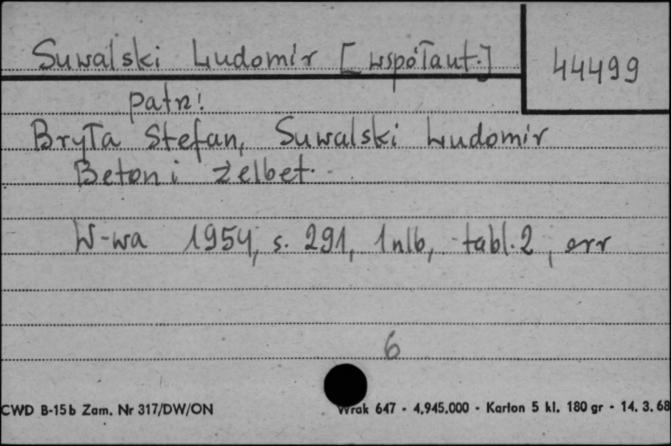 Suwalski Ludomir [współaut.]
44499
patrz:
Bryła Stefan, Suwalski Ludomir
Beton i żelbet.
W-wa 1954, s. 291, 1 nlb, tabl. 2, err
6
CWD B-15b Zam. Nr 317/DW/ON
Wrak 647 - 4.945.000 - Karton 5 kl. 180 gr - 14. 3. 68